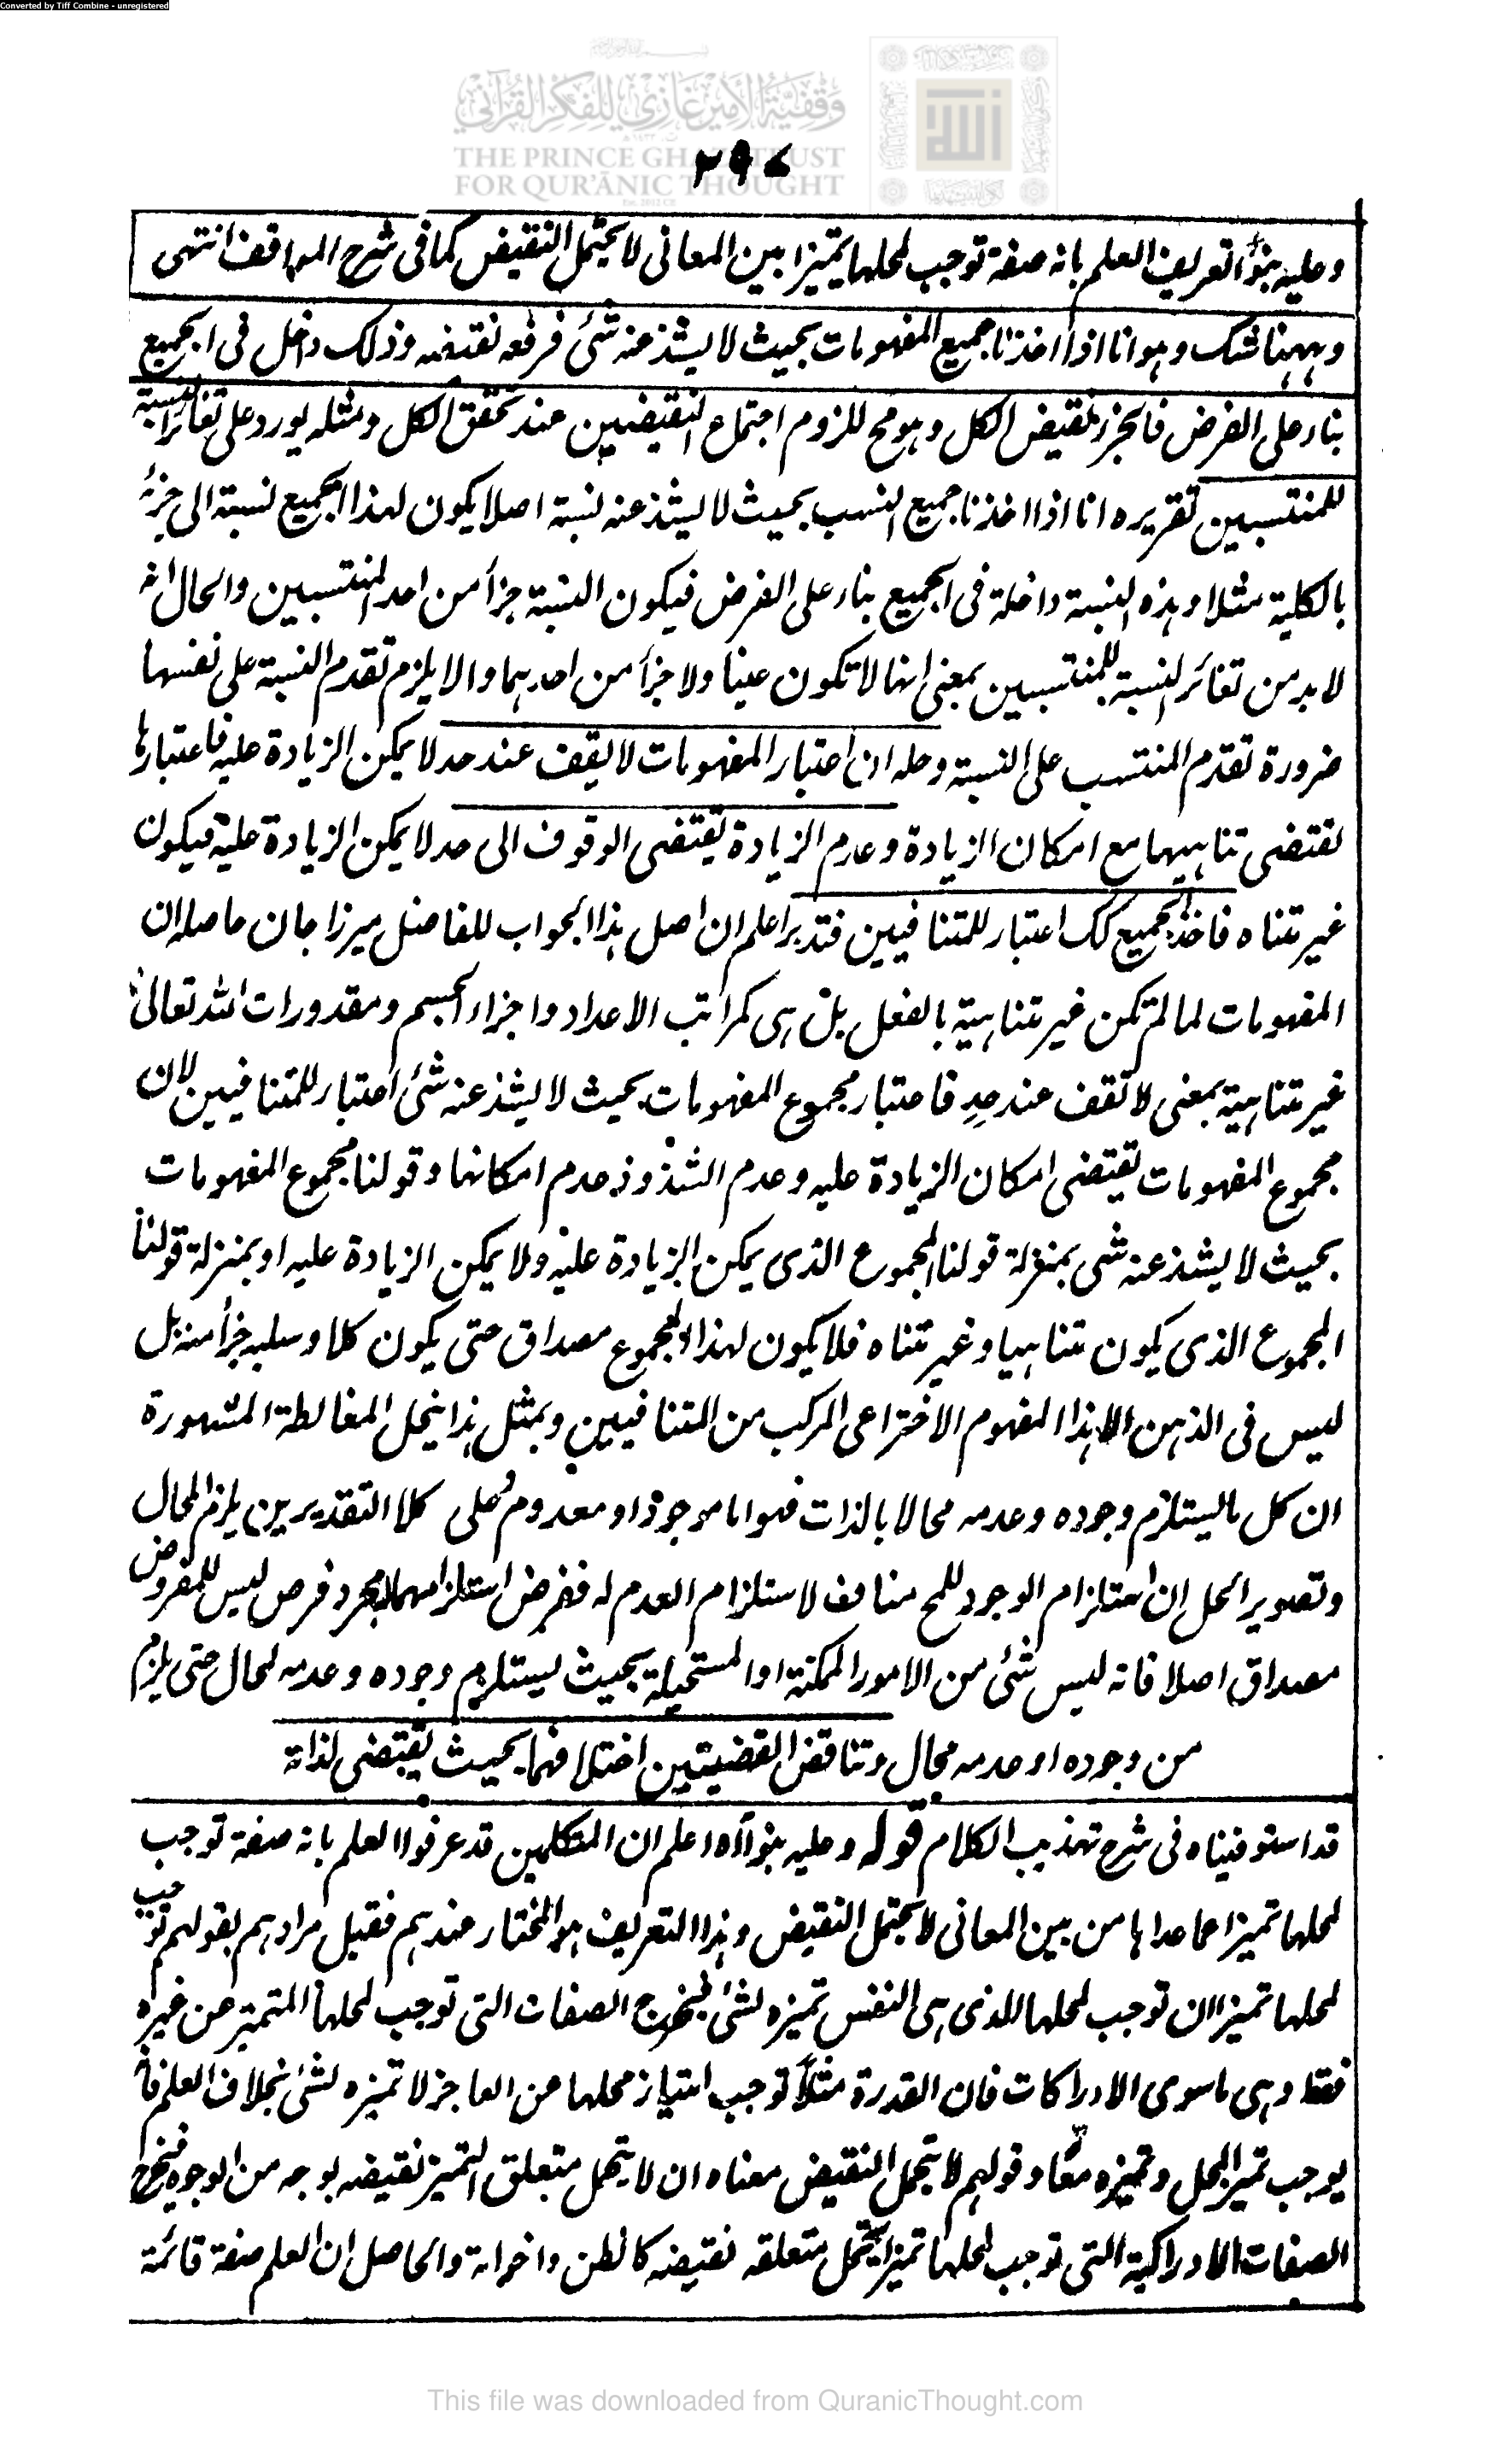 Converted by Tiff Combine - unregistered
وقفية الأمير غازي للفكر القرآني
THE PRINCE GHAZI TRUST
FOR QUR'ĀNIC THOUGHT
٢٩٧
وعليه بنوا تعريف العلم بانه صفة توجب لمحلها تميزا بين المعانى لا يحتمل النقيض كما فى شرح المواقف انتهى
وههنا شك وهو انا اذا اخذنا جميع المفهومات بحيث لا يشذ عنه شئ فرفعه نقيضه وذلك داخل فى الجميع
بناء على الفرض فالجزء نقيض الكل وهو مح للزوم اجتماع النقيضين عند تحقق الكل ومثله يورد على تغائر النسبة
للمنتسبين تقريره انا اذا اخذنا جميع النسب بحيث لا يشذ عنه نسبة اصلا يكون لهذا الجميع نسبة الى جزئه
بالكلية مثلا وهذه النسبة داخلة فى الجميع بناء على الفرض فيكون النسبة جزأ من احد المنتسبين والحال انه
لابد من تغائر النسبة للمنتسبين بمعنى انها لا تكون عينا ولا جزأ من احدهما والا يلزم تقدم النسبة على نفسها
ضرورة تقدم المنتسب على النسبة وحله ان اعتبار المفهومات لا يقف عند حد لا يمكن الزيادة عليه فاعتبارها
تقتضى تناهيها مع امكان الزيادة وعدم الزيادة يقتضى الوقوف الى حد لا يمكن الزيادة عليه فيكون
غير متناه فاخذ الجميع كك اعتبار للمتنافيين فتدبر اعلم ان اصل هذا الجواب للفاضل ميرزا جان حاصله ان
المفهومات لما لم تكن غير متناهية بالفعل بل هى كمراتب الاعداد واجزاء الجسم ومقدورات الله تعالى
غير متناهية بمعنى لا تقف عند حد فاعتبار مجموع المفهومات بحيث لا يشذ عنه شئ اعتبار للمتنافيين لان
مجموع المفهومات تقتضى امكان الزيادة عليه وعدم الشذوذ عدم امكانها وقولنا مجموع المفهومات
بحيث لا يشذ عنه شى بمنزلة قولنا المجموع الذى يمكن الزيادة عليه ولا يمكن الزيادة عليه او بمنزلة قولنا
المجموع الذى يكون متناهيا وغير متناه فلا يكون لهذا المجموع مصداق حتى يكون كلا وسلبه جزأ منه بل
ليس فى الذهن الا هذا المفهوم الاختراعى المركب من المتنافيين وبمثل هذا ينحل المغالطة المشهورة
ان كل ما يستلزم وجوده وعدمه محالا بالذات فهو اما موجود او معدوم وعلى كلا التقديرين يلزم المحال
وتصوير الحل ان استلزام الوجود للمح مناف لاستلزام العدم له ففرض استلزامهما بمجرد فرض ليس للمفروض
مصداق اصلا فانه ليس شئ من الامور الممكنة او المستحيلة بحيث يستلزم وجوده وعدمه لمحال حتى يلزم
من وجوده او عدمه محال وتناقض القضيتين اختلافهما بحيث يقتضى لذاته
قد استوفيناه فى شرح تهذيب الكلام قوله وعليه بنوا آه اعلم ان المتكلمين قد عرفوا العلم بانه صفة توجب
لمحلها تميزا عما عداها من بين المعانى لا يحتمل النقيض وهذا التعريف هو المختار عندهم فقيل مرادهم بقولهم توجب
لمحلها تميزا ان توجب لمحلها الذى هى النفس تميزه لشئ فيخرج الصفات التى توجب لمحلها التميز عن غيره
فقط وهى ما سوى الادراكات فان القدرة مثلا توجب امتياز محلها عن العاجز لا تميزه لشئ بخلاف العلم فانه
يوجب تميز المحل وتميزه معا وقولهم لا يحتمل النقيض معناه ان لا يحتمل متعلق التميز نقيضه بوجه من الوجوه فيخرج
الصفات الادراكية التى توجب لمحلها تميزا يحتمل متعلقه نقيضه كالظن واخواته والحاصل ان العلم صفة قائمة
This file was downloaded from QuranicThought.com